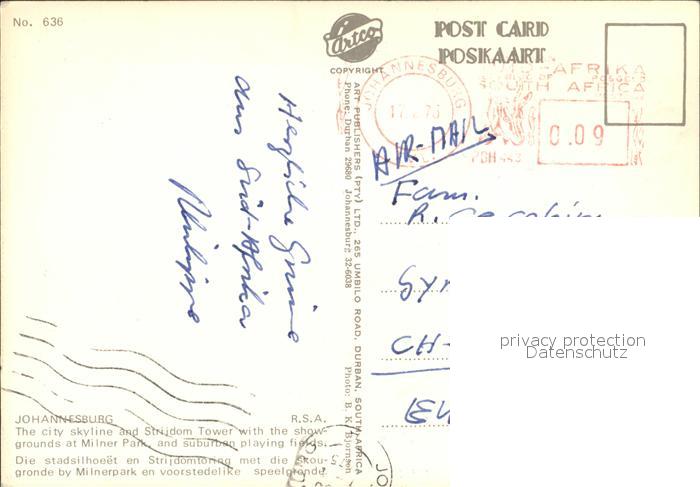 No. 636
Artco
COPYRIGHT
POST CARD
POSKAART
JOHANNESBURG
AFRIKA
SOUTH AFRICA
0.09
AIR-MAIL
Herzliche Grüsse
aus Süd-Afrika
Philippe
ART PUBLISHERS (PTY) LTD., 265 UMBILO ROAD, DURBAN, SOUTH AFRICA
Phone: Durban 29680 Johannesburg 32-6038 Photo: B. K. Bjornsen
Fam.
R.
CH-
privacy protection
Datenschutz
JOHANNESBURG R.S.A.
The city skyline and Strijdom Tower with the show-
grounds at Milner Park, and suburban playing fields.
Die stadsilhoeët en Strijdomtoring met die skou-
gronde by Milnerpark en voorstedelike speelgronde.